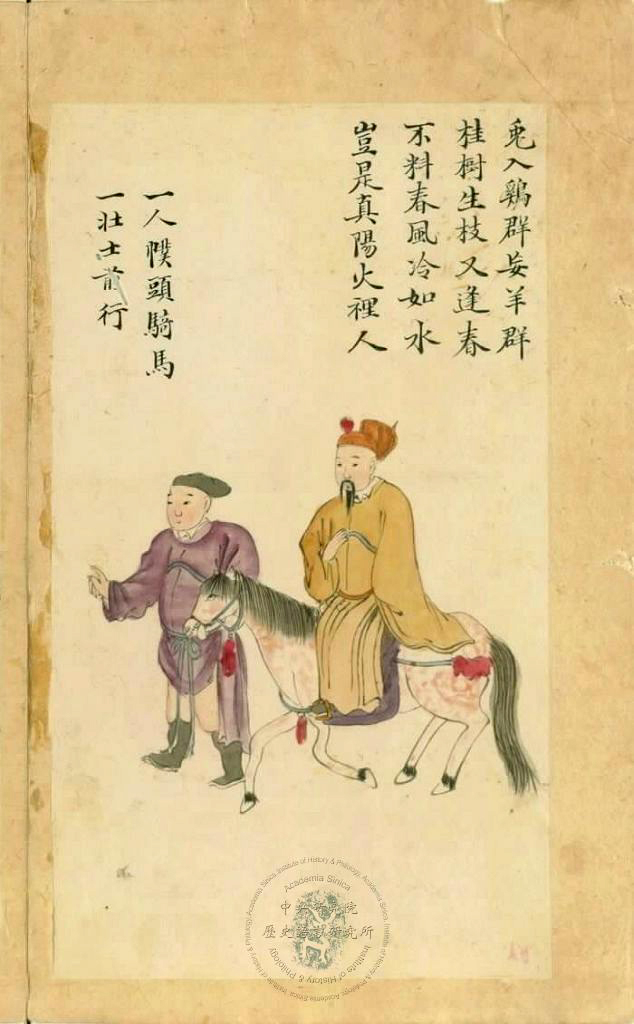 兎入鷄群妄羊群
桂樹生枝又逢春
不料春風冷如水
豈是真陽火裡人
一人幞頭騎馬
一壯士前行
Institute of History & Philology, Academia Sinica
Academia Sinica
中央研究院
歷史語言研究所
Institute of History & Philology